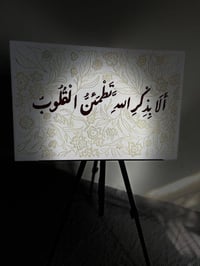 أَلَا بِذِكْرِ اللهِ تَطْمَئِنُّ الْقُلُوبَ